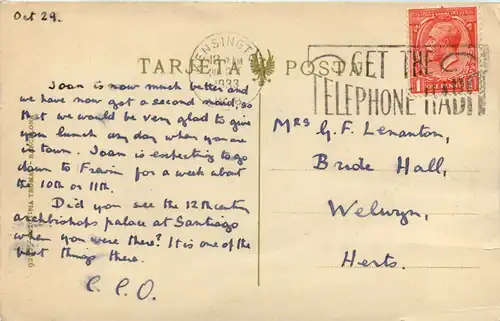 Oct 29.
KENSINGT
1933
TARJETA POSTA
GET THE
TELEPHONE HABIT
Joan is now much better and
we have now got a second maid, so
that we would be very glad to give
you lunch any day when you are
in town. Joan is expecting to go
down to for a week about
the 10th or 11th.
Did you see the 12th century
archbishops palace at Santiago
when you were there? It is one of the
best things there.
C.C.O.
Mrs G. F. Lenanton,
Bride Hall,
Welwyn,
Herts.